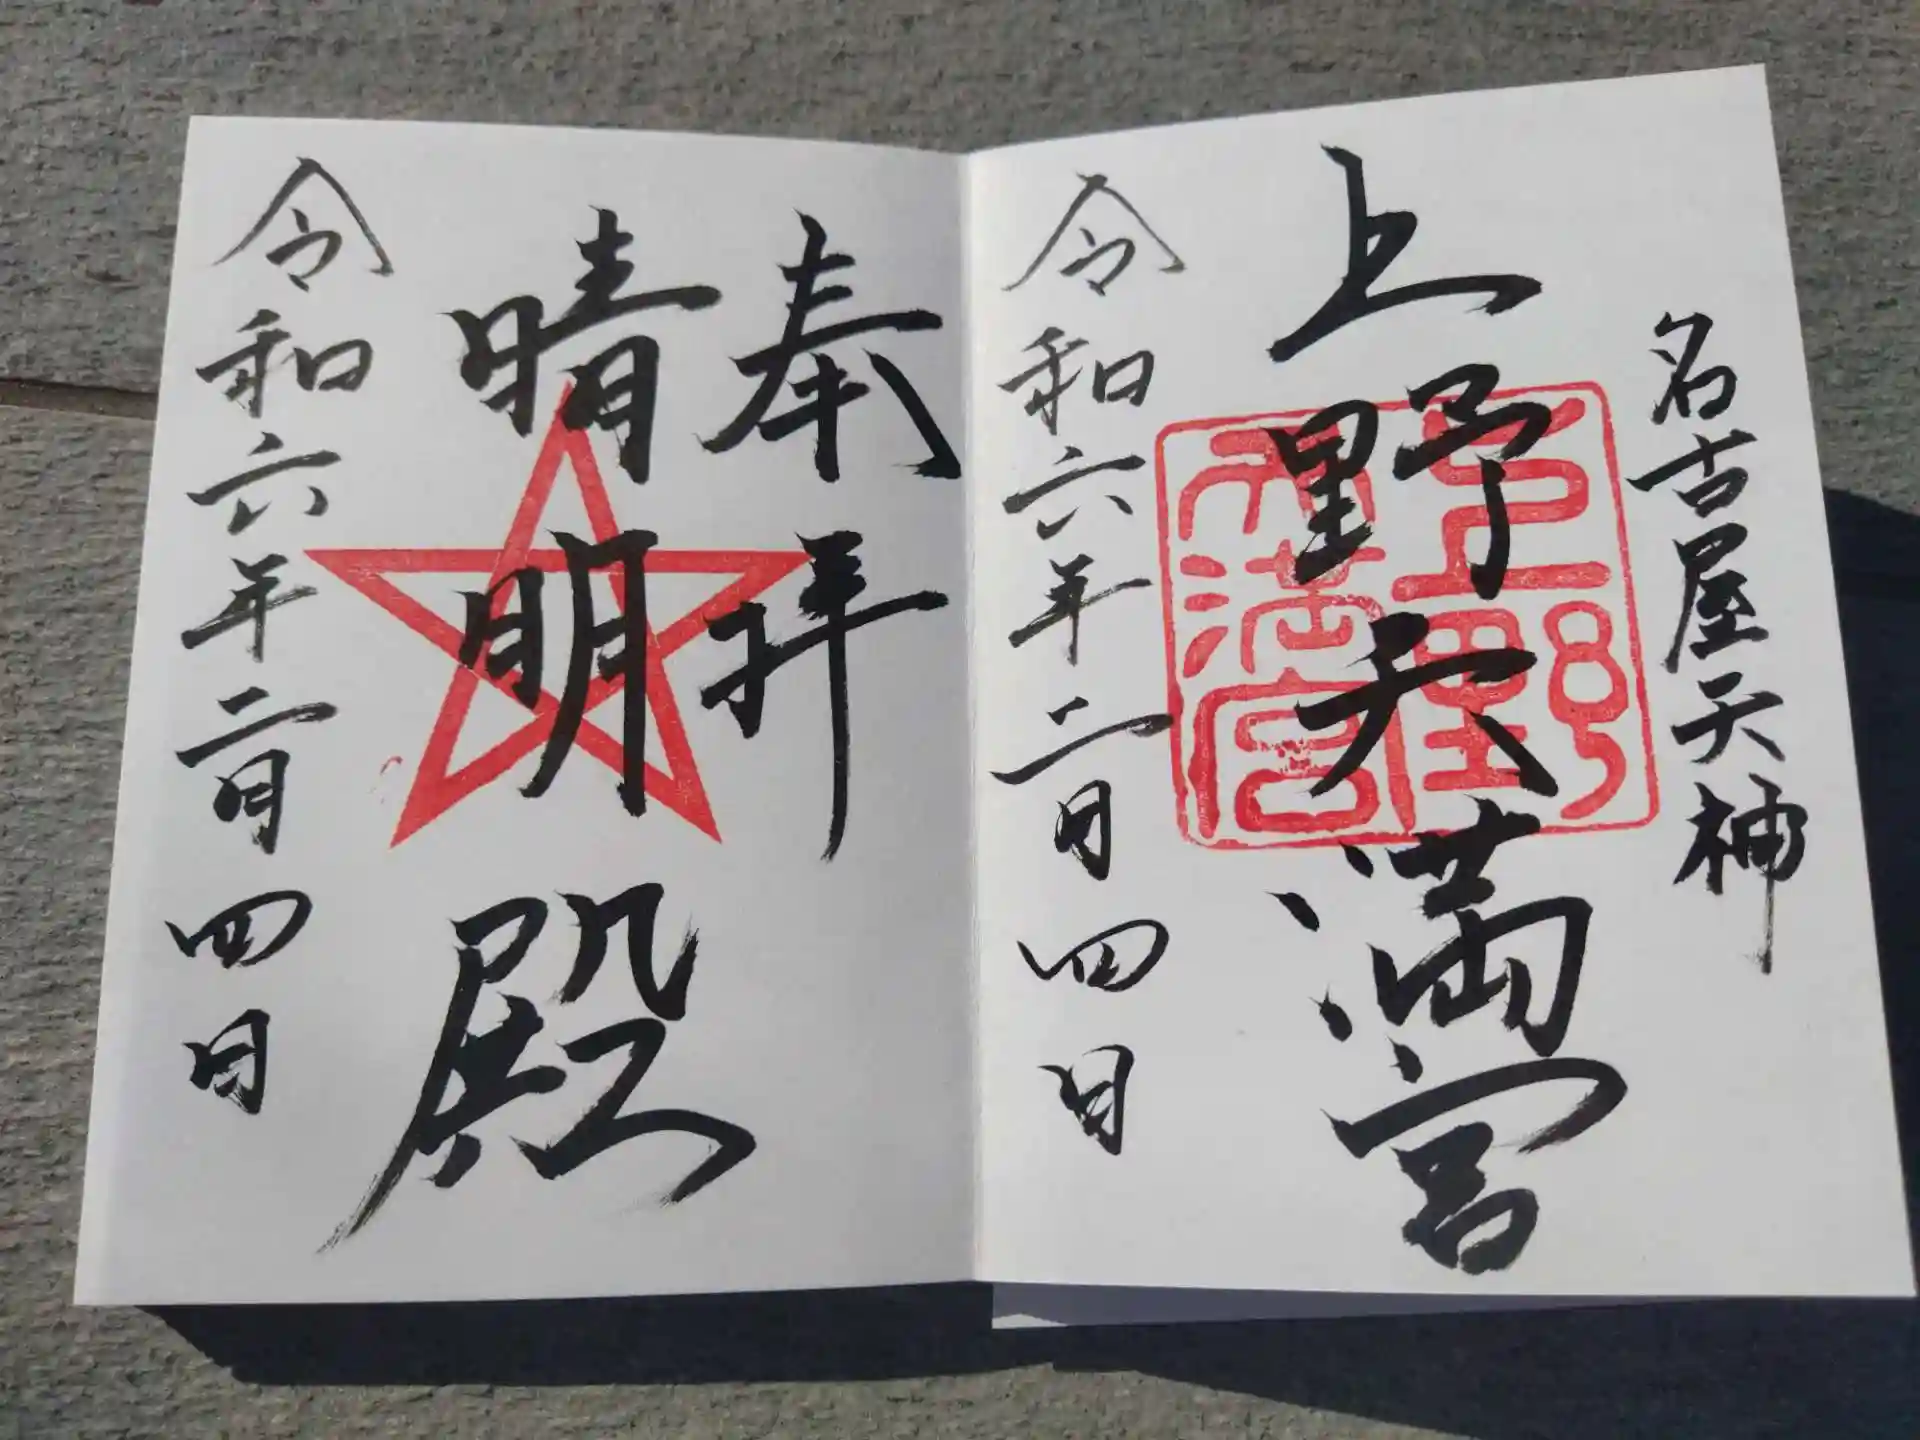 名古屋天神
上野天満宮
上野
天満宮
令和六年二月四日
奉拝
晴明殿
令和六年二月四日